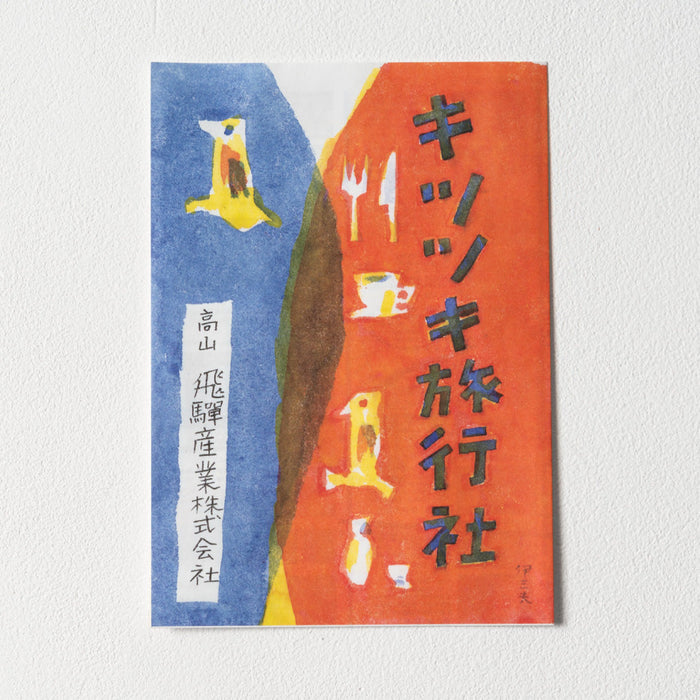 キツツキ旅行社
高山
飛驒産業株式会社
伊三夫